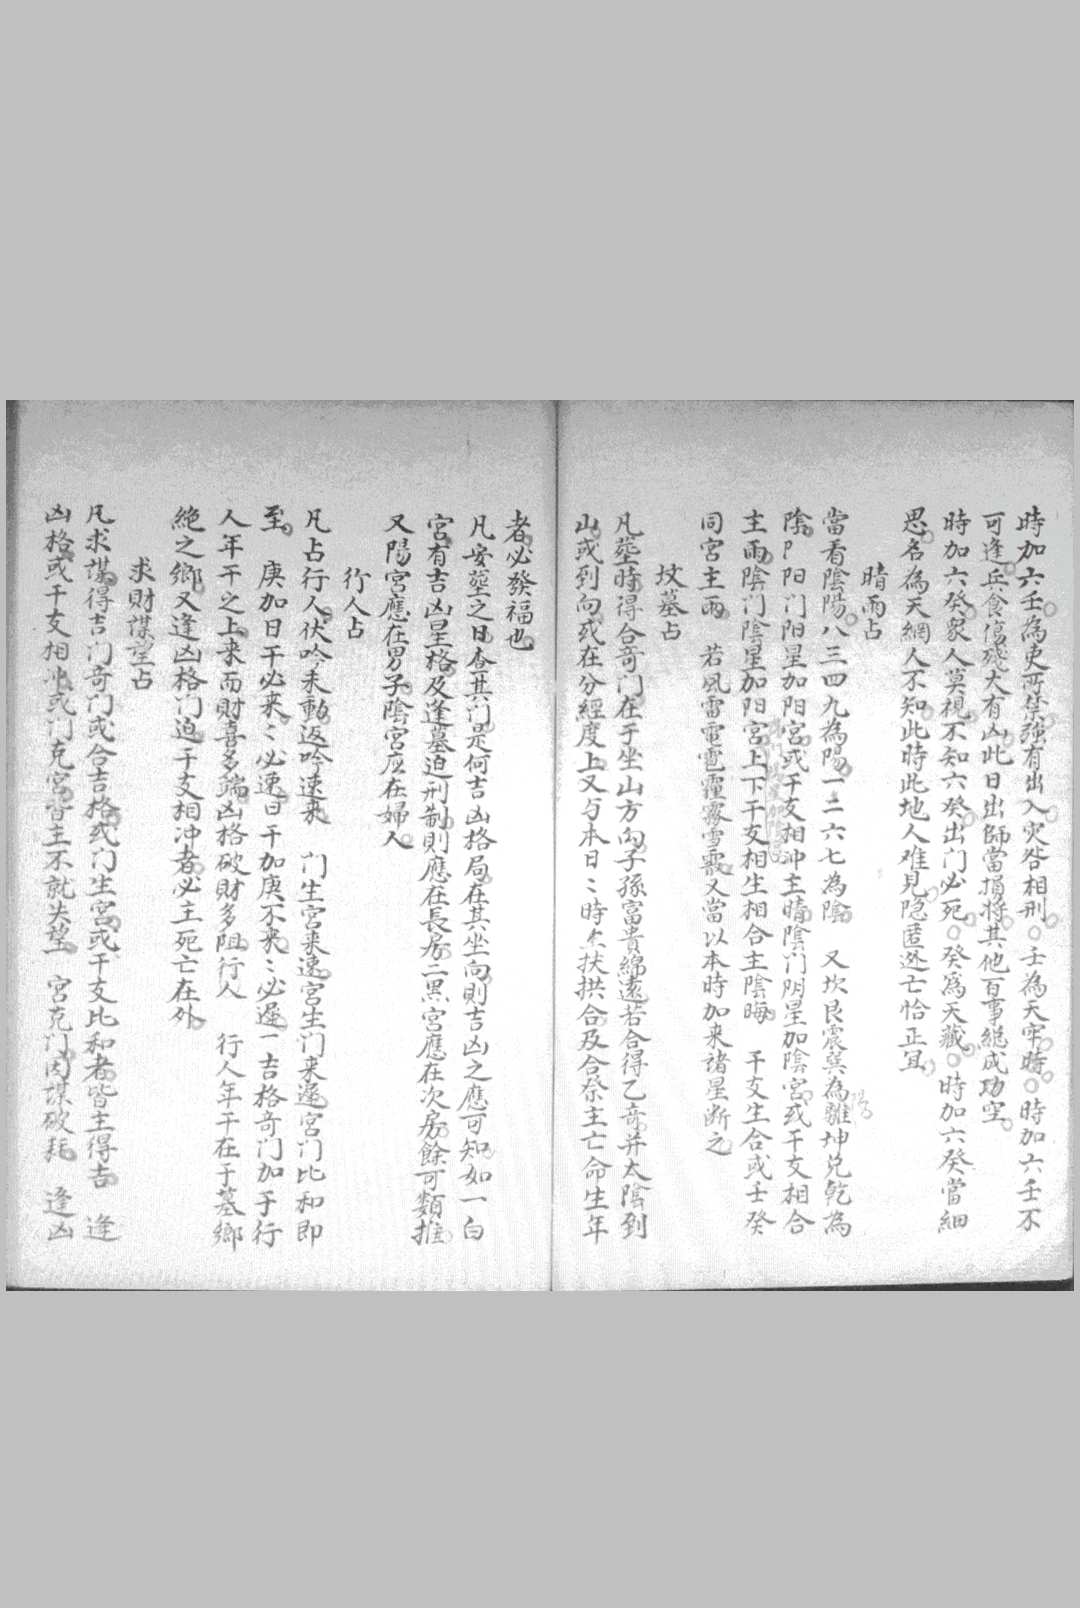 時加六壬為吏所禁強有出入灾咎相刑○壬為天牢時○時加六壬不
可逢兵食傷殘大有凶此日出師當損將其他百事総成功空
時加六癸衆人莫視不知六癸出门必死○癸爲天藏○時加六癸當細
思名為天網人不知此時此地人难見隐匿迯亡恰正宜
晴雨占
當看陰陽八三四九為陽一二六七為陰 又坎艮震巽為離坤兌乾為
陰阝阳门阳星加阳宮或干支相冲主晴陰门阴星加陰宮或干支相合
主雨陰门陰星加阳宮上下干支相生相合主陰晦 干支生合或壬癸
同宮主雨 若風雷電雹霾霧雪霰又當以本時加来诸星断之
坟墓占
凡塟時得合奇门在于坐山方向子孫富貴綿遠若合得乙奇并太陰到
山或到向或在分經度上又与本日〻時干扶拱合及合祭主亡命生年
者必發福也
凡安塟之日查其门是何吉凶格局在其坐向則吉凶之應可知如一白
宮有吉凶星格及逢墓迫刑制則應在長房二黑宮應在次房餘可類推
又陽宮應在男子陰宮应在婦人
行人占
凡占行人伏吟未動返吟速来 门生宮来速宮生门来遲宮门比和即
至 庚加日干必来〻必速日干加庚不来〻必遲一吉格奇门加于行
人年干之上来而財喜多端凶格破財多阻行人 行人年干在于墓鄉
絶之鄉又逢凶格门迫干支相冲者必主死亡在外
求財謀望占
凡求謀得吉门奇门或合吉格或门生宮或干支比和者皆主得吉 逢
凶格或干支相冲或门克宮皆主不就失望 宮克门因谋破耗 逢凶